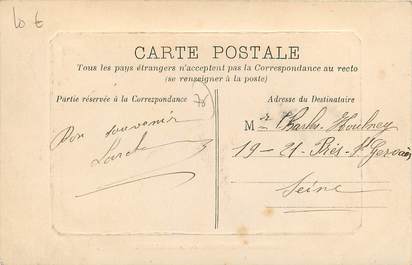 10 €
CARTE POSTALE
Tous les pays étrangers n'acceptent pas la Correspondance au recto
(se renseigner à la poste)
Partie réservée à la Correspondance
Adresse du Destinataire
78
Bon souvenir
M r Charles
19 - 21 - Prés - St Gervais
Seine